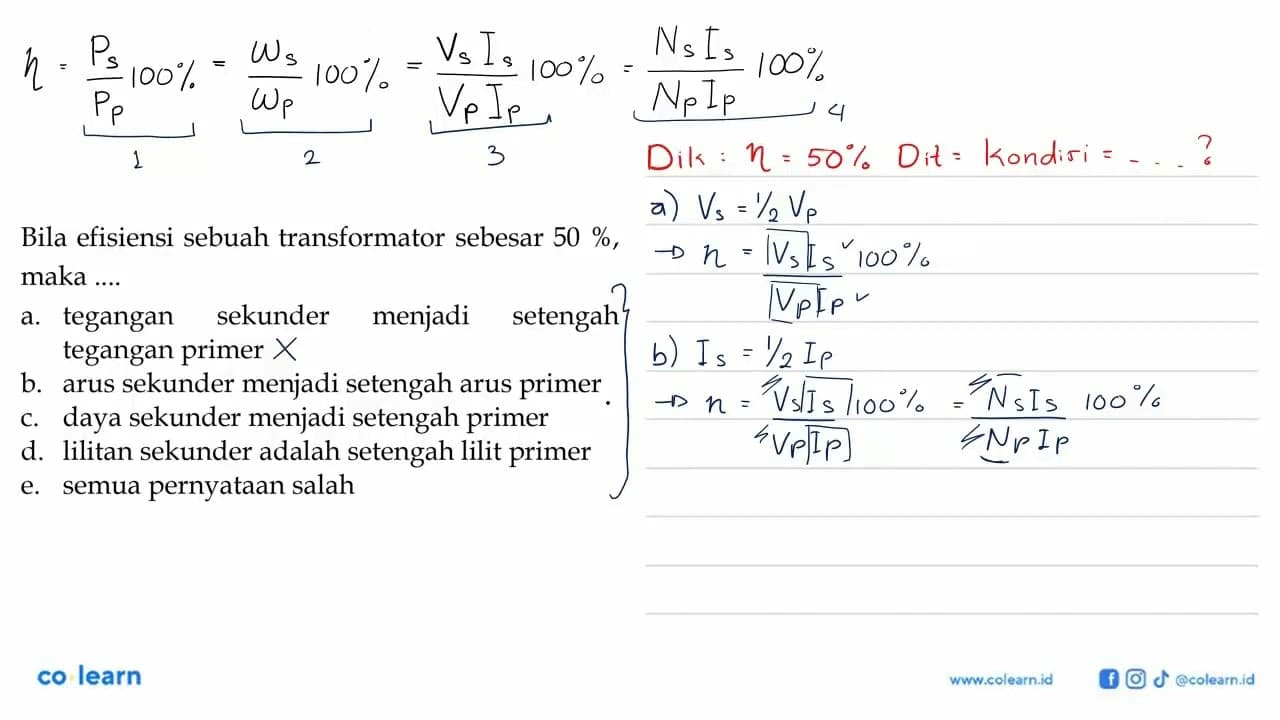 η = Ps/Pp 100% = ωs/ωp 100% = VsIs/VpIp 100% = NsIs/NpIp 100%
1 2 3 4
Dik : η = 50% Dit = kondisi = - . . . ?
Bila efisiensi sebuah transformator sebesar 50 %,
maka ....
a. tegangan sekunder menjadi setengah
tegangan primer X
b. arus sekunder menjadi setengah arus primer
c. daya sekunder menjadi setengah primer
d. lilitan sekunder adalah setengah lilit primer
e. semua pernyataan salah
a) Vs = 1/2 Vp
→ η = VsIs/VpIp 100%
b) Is = 1/2 Ip
→ η = VsIs/VpIp 100% = NsIs/NpIp 100%
co learn
www.colearn.id
@colearn.id